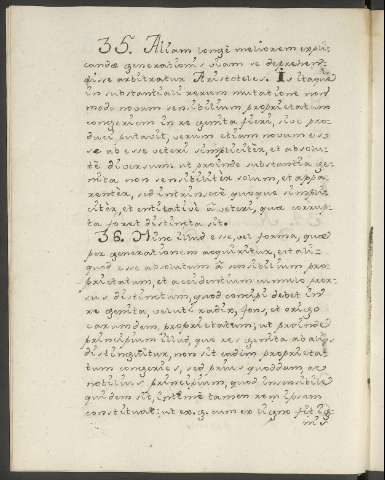 35. Aliam longè meliorem expli
candæ generationis viam se deprehen
disse arbitratur Aristoteles. Is itaque
in substantiali rerum mutatione non
modo novam sensibilium proprietatum
congeriem in re genita fieri, sive pro
duci putavit, verum etiam novum es
se ab esse veteri simpliciter, et absolu
tè diversum: ut proinde substantia ge
nita non sensibiliter solum, et appa
renter, sed intrinsecè quoque simpli
citer, et entitativè à veteri, quæ corrup
ta foret distincta sit.
36. Hinc illud esse, vel forma, quæ
per generationem acquiritur, est ali
quid esse absolutum à sensibilium pro
prietatum, et accidentium cumulo pror
sus distinctum, quod concipi debet in
re genita, veluti radix, fons, et origo
earumdem proprietatum; ut proinde
principium illud, quo res genita ab aliis
distinguitur, non sit eadem proprieta
tum congeries, sed prius quoddam, ac
nobilius principium, quod insensibile
quidem sit, intimè tamen rem ipsam
constituat: ut ex. g. cum ex ligno fit ig
nis